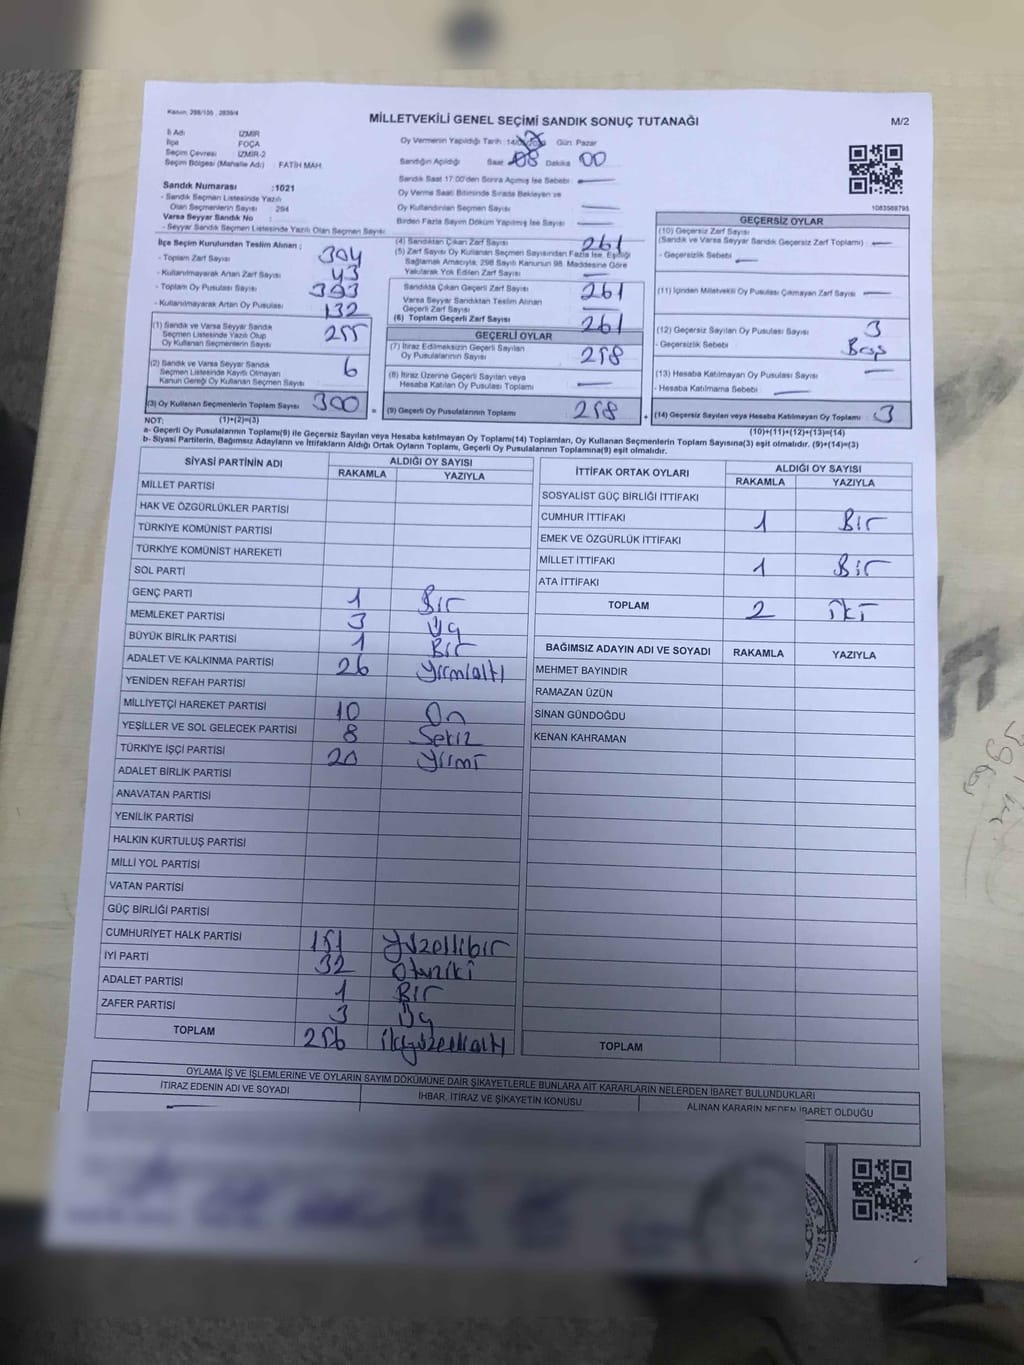 Kanun: 298/105 , 2839/4
MİLLETVEKİLİ GENEL SEÇİMİ SANDIK SONUÇ TUTANAĞI
M/2
İli Adı İZMİR
İlçe FOÇA
Seçim Çevresi : İZMİR-2
Seçim Bölgesi (Mahalle Adı) : FATİH MAH.
Oy Vermenin Yapıldığı Tarih : Gün: Pazar
Sandığın Açıldığı Saat 08 Dakika 00
Sandık Saat 17:00'den Sonra Açılmış İse Sebebi :
Oy Verme Saati Bitiminde Sırada Bekleyen ve
Oy Kullandırılan Seçmen Sayısı :
Birden Fazla Sayım Döküm Yapılmış İse Sayısı :
1083568795
Sandık Numarası : 1021
- Sandık Seçmen Listesinde Yazılı
Olan Seçmenlerin Sayısı : 294
Varsa Seyyar Sandık No :
- Seyyar Sandık Seçmen Listesinde Yazılı Olan Seçmen Sayısı :
İlçe Seçim Kurulundan Teslim Alınan ;
- Toplam Zarf Sayısı 304
- Kullanılmayarak Artan Zarf Sayısı 43
- Toplam Oy Pusulası Sayısı 393
- Kullanılmayarak Artan Oy Pusulası 132
(1) Sandık ve Varsa Seyyar Sandık
Seçmen Listesinde Yazılı Olup
Oy Kullanan Seçmenlerin Sayısı 255
(2) Sandık ve Varsa Seyyar Sandık
Seçmen Listesinde Kayıtlı Olmayan
Kanun Gereği Oy Kullanan Seçmen Sayısı 6
(3) Oy Kullanan Seçmenlerin Toplam Sayısı 300 =
(4) Sandıktan Çıkan Zarf Sayısı 261
(5) Zarf Sayısı Oy Kullanan Seçmen Sayısından Fazla İse, Eşitliği
Sağlamak Amacıyla, 298 Sayılı Kanunun 98. Maddesine Göre
Yakılarak Yok Edilen Zarf Sayısı
Sandıkta Çıkan Geçerli Zarf Sayısı 261
Varsa Seyyar Sandıktan Teslim Alınan
Geçerli Zarf Sayısı
(6) Toplam Geçerli Zarf Sayısı 261
GEÇERLİ OYLAR
(7) İtiraz Edilmeksizin Geçerli Sayılan
Oy Pusulalarının Sayısı 258
(8) İtiraz Üzerine Geçerli Sayılan veya
Hesaba Katılan Oy Pusulası Toplamı
(9) Geçerli Oy Pusulalarının Toplamı 258 +
GEÇERSİZ OYLAR
(10) Geçersiz Zarf Sayısı
(Sandık ve Varsa Seyyar Sandık Geçersiz Zarf Toplamı) :
- Geçersizlik Sebebi
(11) İçinden Milletvekili Oy Pusulası Çıkmayan Zarf Sayısı
(12) Geçersiz Sayılan Oy Pusulası Sayısı 3
- Geçersizlik Sebebi
(13) Hesaba Katılmayan Oy Pusulası Sayısı
- Hesaba Katılmama Sebebi :
(14) Geçersiz Sayılan veya Hesaba Katılmayan Oy Toplamı : 3
NOT: (1)+(2)=(3)
(10)+(11)+(12)+(13)=(14)
a- Geçerli Oy Pusulalarının Toplamı(9) ile Geçersiz Sayılan veya Hesaba katılmayan Oy Toplamı(14) Toplamları, Oy Kullanan Seçmenlerin Toplam Sayısına(3) eşit olmalıdır. (9)+(14)=(3)
b- Siyasi Partilerin, Bağımsız Adayların ve İttifakların Aldığı Ortak Oyların Toplamı, Geçerli Oy Pusulalarının Toplamına(9) eşit olmalıdır.
SİYASİ PARTİNİN ADI
ALDIĞI OY SAYISI
RAKAMLA YAZIYLA
MİLLET PARTİSİ
HAK VE ÖZGÜRLÜKLER PARTİSİ
TÜRKİYE KOMÜNİST PARTİSİ
TÜRKİYE KOMÜNİST HAREKETİ
SOL PARTİ
GENÇ PARTİ 1 Bir
MEMLEKET PARTİSİ 3 Üç
BÜYÜK BİRLİK PARTİSİ 1 Bir
ADALET VE KALKINMA PARTİSİ 26 Yirmialtı
YENİDEN REFAH PARTİSİ
MİLLİYETÇİ HAREKET PARTİSİ 10 On
YEŞİLLER VE SOL GELECEK PARTİSİ 8 Sekiz
TÜRKİYE İŞÇİ PARTİSİ 20 Yirmi
ADALET BİRLİK PARTİSİ
ANAVATAN PARTİSİ
YENİLİK PARTİSİ
HALKIN KURTULUŞ PARTİSİ
MİLLİ YOL PARTİSİ
VATAN PARTİSİ
GÜÇ BİRLİĞİ PARTİSİ
CUMHURİYET HALK PARTİSİ 151 Yüzellibir
İYİ PARTİ 32 Otuziki
ADALET PARTİSİ 1 Bir
ZAFER PARTİSİ 3 Üç
TOPLAM 256 ikiyüzellialtı
İTTİFAK ORTAK OYLARI
ALDIĞI OY SAYISI
RAKAMLA YAZIYLA
SOSYALİST GÜÇ BİRLİĞİ İTTİFAKI
CUMHUR İTTİFAKI 1 Bir
EMEK VE ÖZGÜRLÜK İTTİFAKI
MİLLET İTTİFAKI 1 Bir
ATA İTTİFAKI
TOPLAM 2 iki
BAĞIMSIZ ADAYIN ADI VE SOYADI RAKAMLA YAZIYLA
MEHMET BAYINDIR
RAMAZAN ÜZÜN
SİNAN GÜNDOĞDU
KENAN KAHRAMAN
TOPLAM
OYLAMA İŞ VE İŞLEMLERİNE VE OYLARIN SAYIM DÖKÜMÜNE DAİR ŞİKAYETLERLE BUNLARA AİT KARARLARIN NELERDEN İBARET BULUNDUKLARI
İTİRAZ EDENİN ADI VE SOYADI
İHBAR, İTİRAZ VE ŞİKAYETİN KONUSU
ALINAN KARARIN NEDEN İBARET OLDUĞU